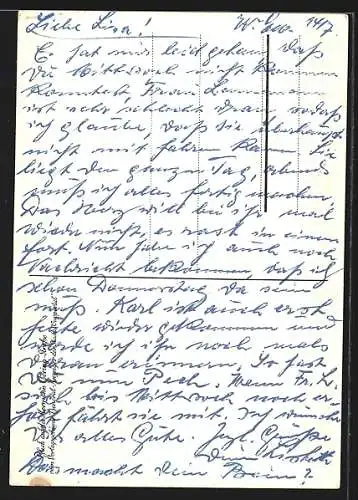 Liebe Lisa! W. 14/7.
Es hat mir leid getan, daß
Du Mittwoch nicht kommen
konntest. Frau
ist sehr schlecht dran, sodaß
ich glaube, daß sie überhaupt
nicht mit fahren kann. Sie
liegt den ganzen Tag, abends
muß ich alles fertig machen.
Das Herz will bei ihr mal
wieder nicht, es rast in einem
fort. Nun habe ich auch noch
Nachricht bekommen, daß ich
schon Donnerstag da sein
muß. Karl ist auch erst
heute wieder gekommen und
werde ich ihn noch mals
daran erinnern. So hast
Du nun Pech. Wenn Fr. L.
sich bis Mittwoch noch er-
holt fährt sie mit. Ich wünsche
Dir alles Gute. Hzl. Grüße
Deine
Was macht Dein Bein?